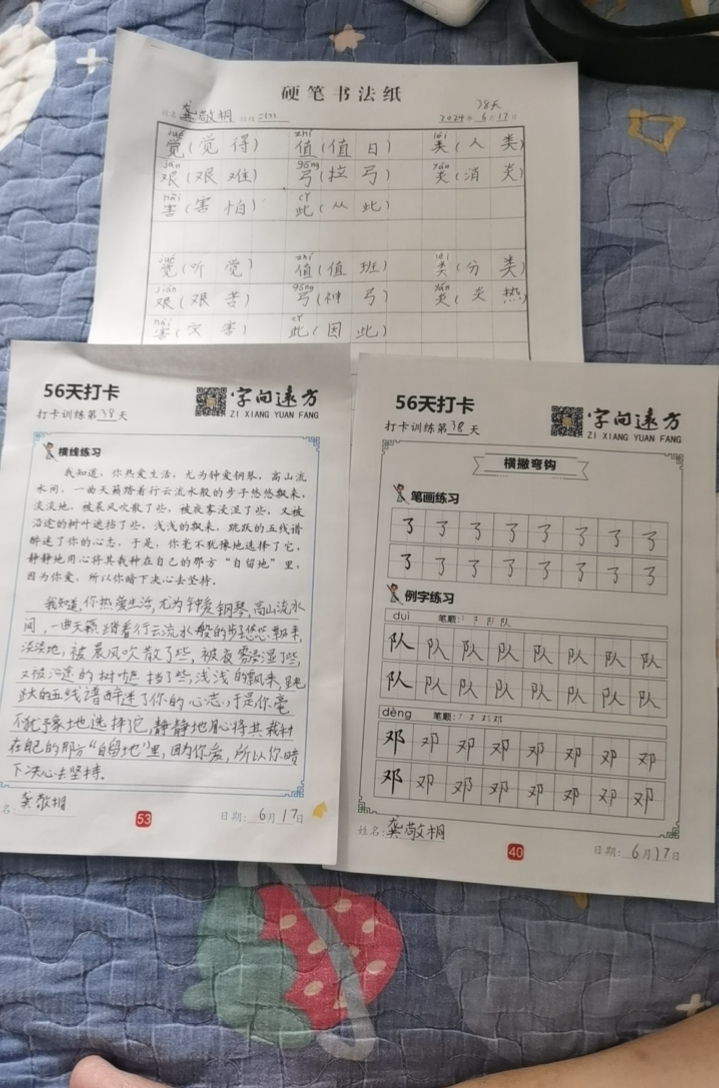 硬笔书法纸
38天
姓名 龚敬桐 2024年6月17日
jué zhí lèi
觉(觉得) 值(值日) 类(人类)
jiān gōng yán
艰(艰难) 弓(拉弓) 炎(消炎)
hài cǐ
害(害怕) 此(从此)
jué zhí lèi
觉(听觉) 值(值班) 类(分类)
jiān gōng yán
艰(艰苦) 弓(神弓) 炎(炎热)
hài cǐ
害(灾害) 此(因此)
56天打卡
字向远方
打卡训练第38天
ZI XIANG YUAN FANG
横线练习
我知道,你热爱生活,尤为钟爱钢琴,高山流
水间,一曲天籁踏着行云流水般的步子悠悠飘来,
淡淡地,被晨风吹散了些,被夜雾浸湿了些,又被
沿途的树叶遮挡了些,浅浅的飘来,跳跃的五线谱
醉迷了你的心志,于是,你毫不犹豫地选择了它,
静静地用心将其栽种在自己的那方“自留地”里,
因为你爱,所以你暗下决心去坚持。
我知道,你热爱生活,尤为钟爱钢琴,高山流水
间,一曲天籁踏着行云流水般的步子悠悠飘来,
淡淡地,被晨风吹散了些,被夜雾浸湿了些,
又被沿途的树叶挡了些,浅浅的飘来,跳
跃的五线谱醉迷了你的心志,于是你毫
不犹豫地选择它,静静地用心将其栽种
在自己的那方“自留地”里,因为你爱,所以你暗
下决心去坚持。
名: 龚敬桐
53
日期: 6月17日
56天打卡
字向远方
打卡训练第38天
ZI XIANG YUAN FANG
横撇弯钩
笔画练习
例字练习
duì 笔顺:
队 队 队 队 队 队 队 队
队 队 队 队 队 队 队 队
dèng 笔顺:
邓 邓 邓 邓 邓 邓 邓 邓
邓 邓 邓 邓 邓 邓 邓 邓
姓名: 龚敬桐
40
日期: 6月17日